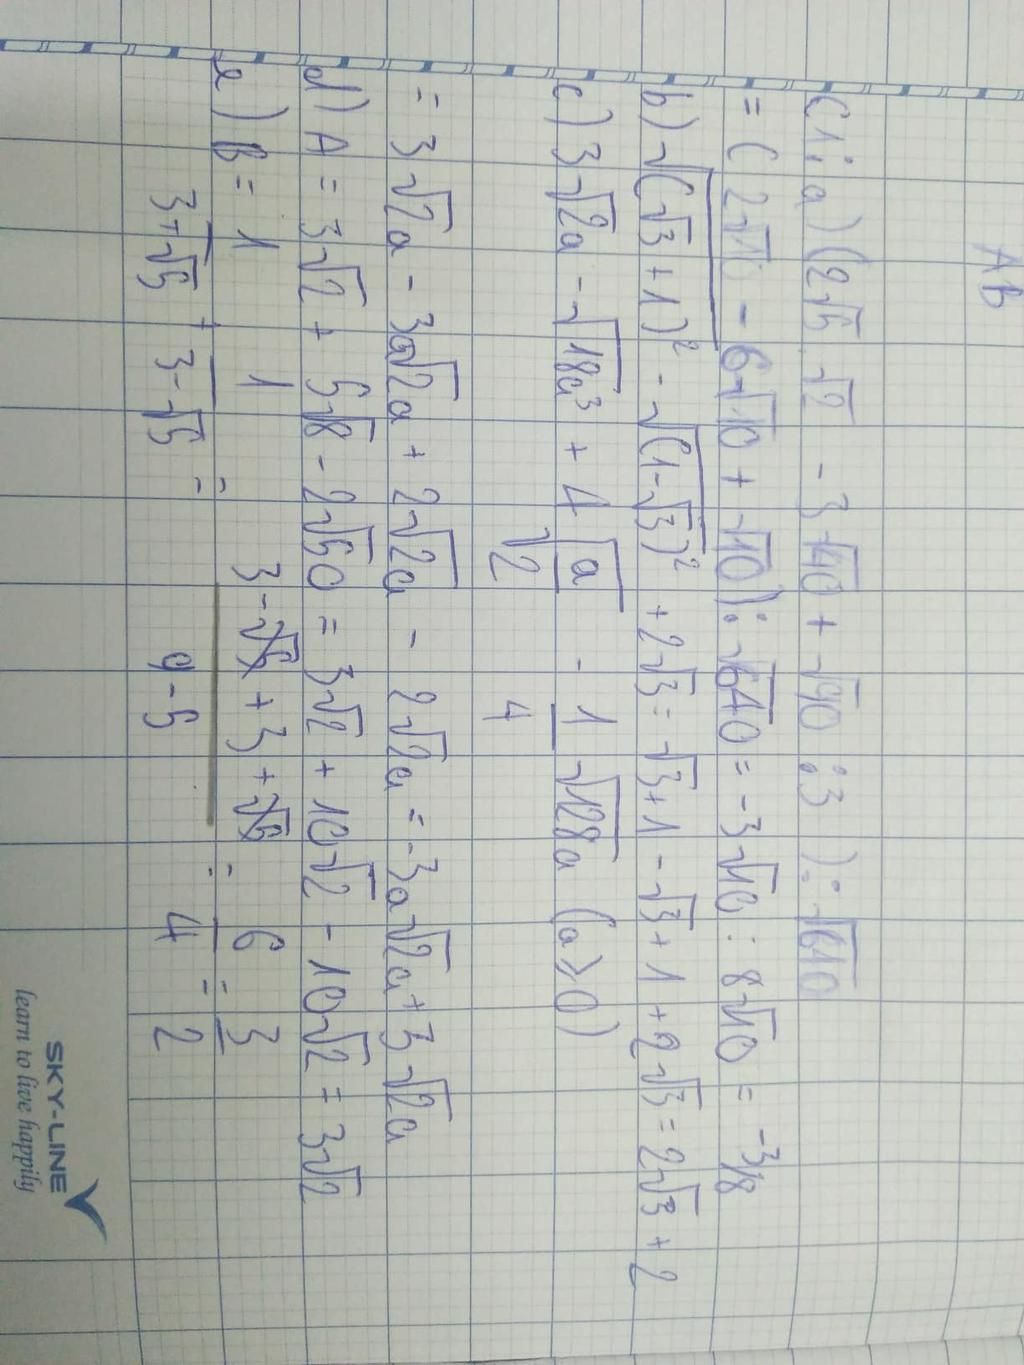 AB
C1: a) (2√5 √2 - 3√40 + √90 : 3 ) : √640
= (2√10 - 6√10 + √10) : √640 = -3√10 : 8√10 = -3/8
b) √(√3+1)² - √(1-√3)² + 2√3 = √3+1 - √3+1 + 2√3 = 2√3 + 2
c) 3√2a - √18a³ + 4√a/2 - 1/4 √128a (a≥0)
= 3√2a - 3a√2a + 2√2a - 2√2a = -3a√2a + 3√2a
d) A = 3√2 + 5√8 - 2√50 = 3√2 + 10√2 - 10√2 = 3√2
e) B = 1/3+√5 + 1/3-√5 = 3-√5+3+√5/9-5 = 6/4 = 3/2
SKY-LINE
learn to live happily